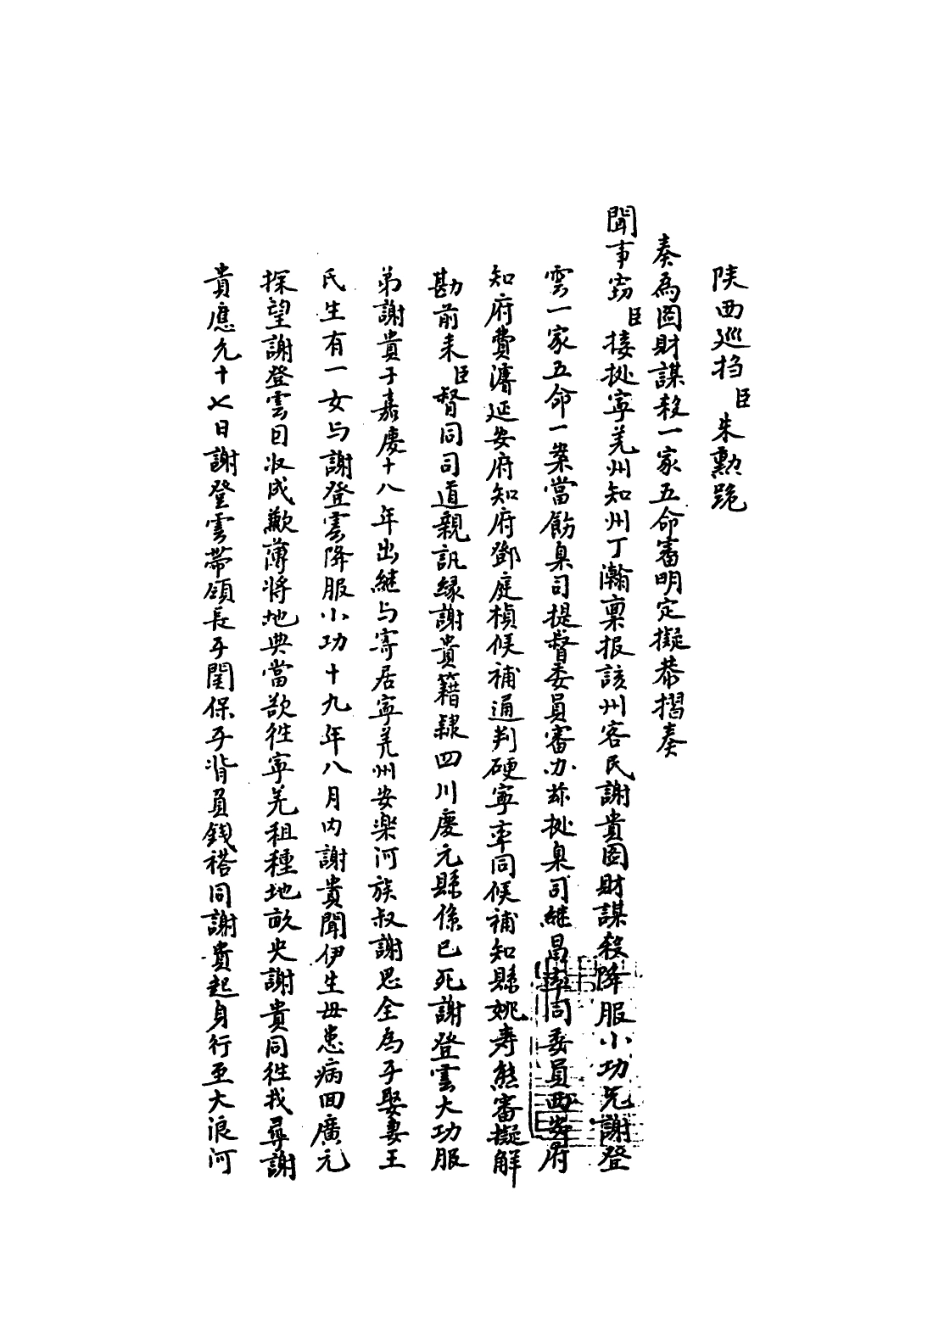 陕西巡撫臣朱勳跪
奏為圖財謀殺一家五命審明定擬恭摺奏
聞事窃臣接挀寧羌州知州丁瀚稟报該州客民謝貴圖財謀殺降服小功兄謝登
雲一家五命一案當飭臬司提督委員審办茲挀臬司継昌率同委員西安府
知府費濬延安府知府鄧庭楨候補通判硬寧率同候補知縣姚寿熊審擬解
勘前来臣督同司道親訊縁謝貴籍隸四川廣元縣係已死謝登雲大功服
弟謝貴于嘉慶十八年出継与寄居寧羌州安樂河族叔謝思全為子娶妻王
氏生有一女与謝登雲降服小功十九年八月内謝貴聞伊生母患病回廣元
探望謝登雲因收成歉薄將地典當欲往寧羌租種地畝央謝貴同往找尋謝
貴應允十七日謝登雲帶領長子閏保子背負錢褡同謝貴起身行至大浪河